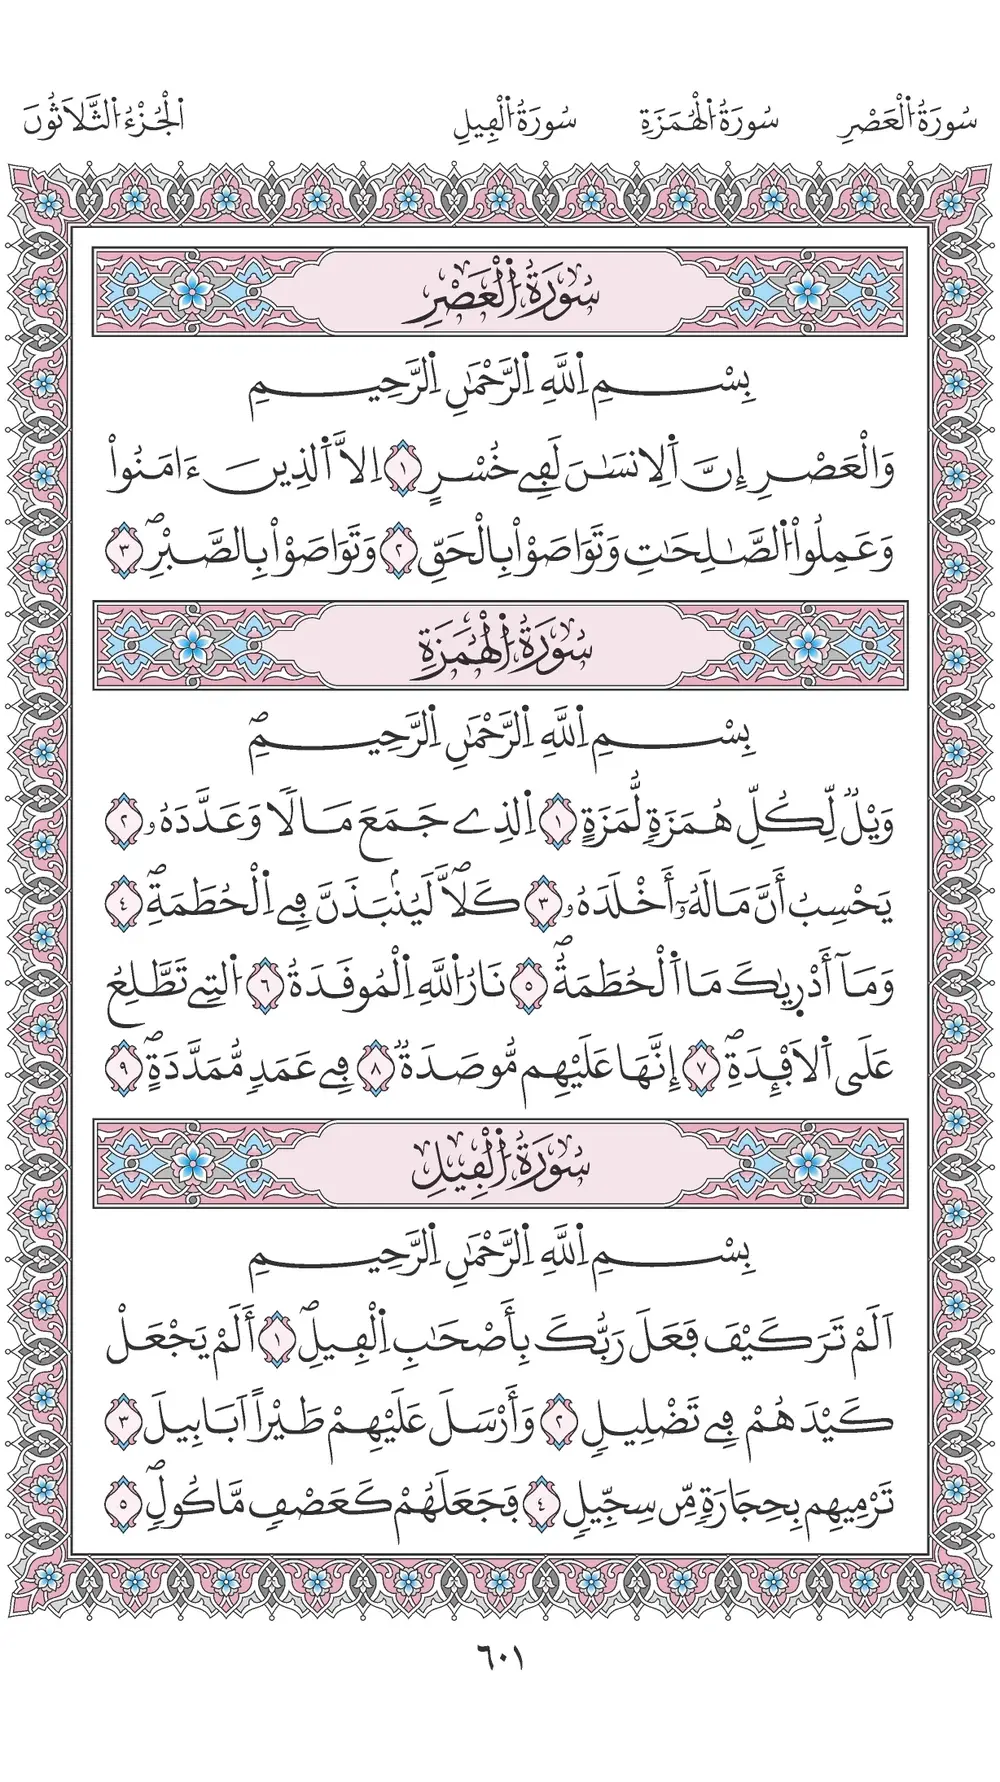 سُورَةُ اُلْعَصْرِ سُورَةُ اُلْهُمَزَةِ سُورَةُ اُلْفِيلِ اُلْجُزْءُ اُلثَّلَاثُونَ
سُورَةُ اُلْعَصْرِ
بِسْمِ اِللَّهِ اِلرَّحْمَٰنِ اِلرَّحِيمِ
وَالْعَصْرِ إِنَّ اَلِانسَٰنَ لَفِے خُسْرٍ ١ اِلَّا اَلذِينَ ءَامَنُواْ
وَعَمِلُواْ اُلصَّٰلِحَٰتِ وَتَوَاصَوْاْ بِالْحَقِّ ٢ وَتَوَاصَوْاْ بِالصَّبْرِۖ ٣
سُورَةُ اُلْهُمَزَةِ
بِسْمِ اِللَّهِ اِلرَّحْمَٰنِ اِلرَّحِيمِۖ
وَيْلٌ لِّكُلِّ هُمَزَةٍ لُّمَزَةٍ ١ اِلذِے جَمَعَ مَالًا وَعَدَّدَهُۥ ٢
يَحْسِبُ أَنَّ مَالَهُۥٓ أَخْلَدَهُۥ ٣ كَلَّاۖ لَيُنۢبَذَنَّ فِے اِلْحُطَمَةِۖ ٤
وَمَآ أَدْر۪يٰكَ مَا اَلْحُطَمَةُۖ ٥ نَارُ اُللَّهِ اِلْمُوقَدَةُ ٦ اُلتِے تَطَّلِعُ
عَلَى اَلَافْـِٕدَةِۖ ٧ إِنَّهَا عَلَيْهِم مُّوصَدَةٌ ٨ فِے عَمَدٍ مُّمَدَّدَةٍۖ ٩
سُورَةُ اُلْفِيلِ
بِسْمِ اِللَّهِ اِلرَّحْمَٰنِ اِلرَّحِيمِ
اَلَمْ تَرَ كَيْفَ فَعَلَ رَبُّكَ بِأَصْحَٰبِ اِلْفِيلِۖ ١ أَلَمْ يَجْعَلْ
كَيْدَهُمْ فِے تَضْلِيلٍ ٢ وَأَرْسَلَ عَلَيْهِمْ طَيْراً اَبَابِيلَ ٣
تَرْمِيهِم بِحِجَارَةٍ مِّن سِجِّيلٍ ٤ فَجَعَلَهُمْ كَعَصْفٍ مَّاكُولٍۖ ٥
٦٠١